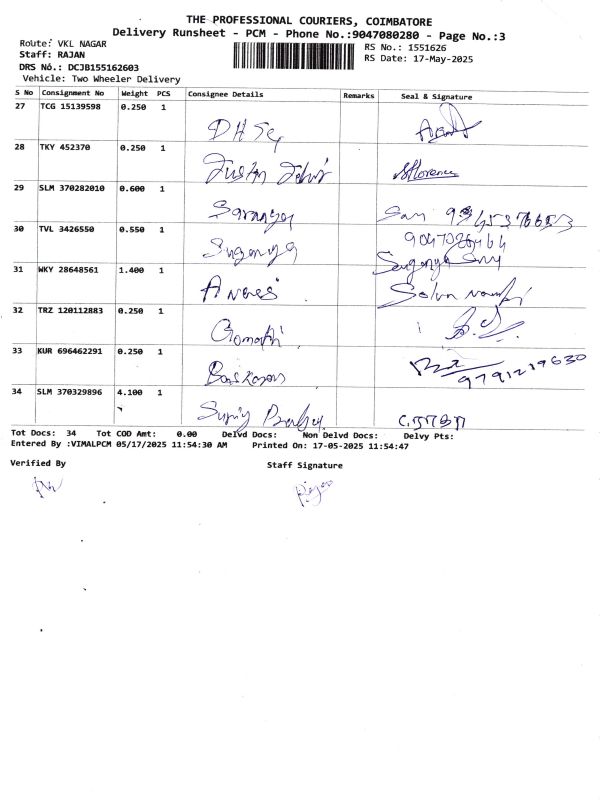 THE PROFESSIONAL COURIERS, COIMBATORE
Delivery Runsheet - PCM - Phone No.:9047080280 - Page No.:3
Route: VKL NAGAR
RS No.: 1551626
Staff: RAJAN
RS Date: 17-May-2025
DRS No.: DCJB155162603
Vehicle: Two Wheeler Delivery
S No Consignment No Weight PCS Consignee Details Remarks Seal & Signature
27 TCG 15139598 0.250 1
28 TKY 452370 0.250 1 Justin
29 SLM 370282010 0.600 1 Saranya
30 TVL 3426550 0.550 1 Suganya
31 WKY 28648561 1.400 1
32 TRZ 120112883 0.250 1 Gomathi
33 KUR 696462291 0.250 1 Baskaran
9791219630
34 SLM 370329896 4.100 1
Tot Docs: 34 Tot COD Amt: 0.00 Delvd Docs: Non Delvd Docs: Delvy Pts:
Entered By :VIMALPCM 05/17/2025 11:54:30 AM Printed On: 17-05-2025 11:54:47
Verified By Staff Signature
Rajan